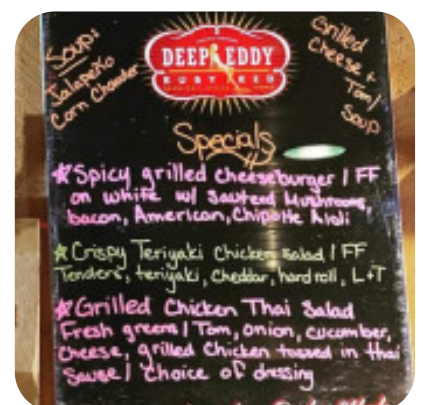 Soup:
Jalapeño
Corn Chowder
DEEP EDDY
RUBY RED
Grilled
Cheese +
Tom/
Soup
Specials
Spicy grilled cheeseburger / FF
on white w/ Sauteed Mushrooms,
bacon, American, Chipotle Aioli
Crispy Teriyaki Chicken Salad / FF
Tenders, teriyaki, Cheddar, hard roll, L+T
Grilled Chicken Thai Salad
Fresh greens / Tom, onion, cucumber,
cheese, grilled Chicken tossed in thai
Sause / Choice of dressing